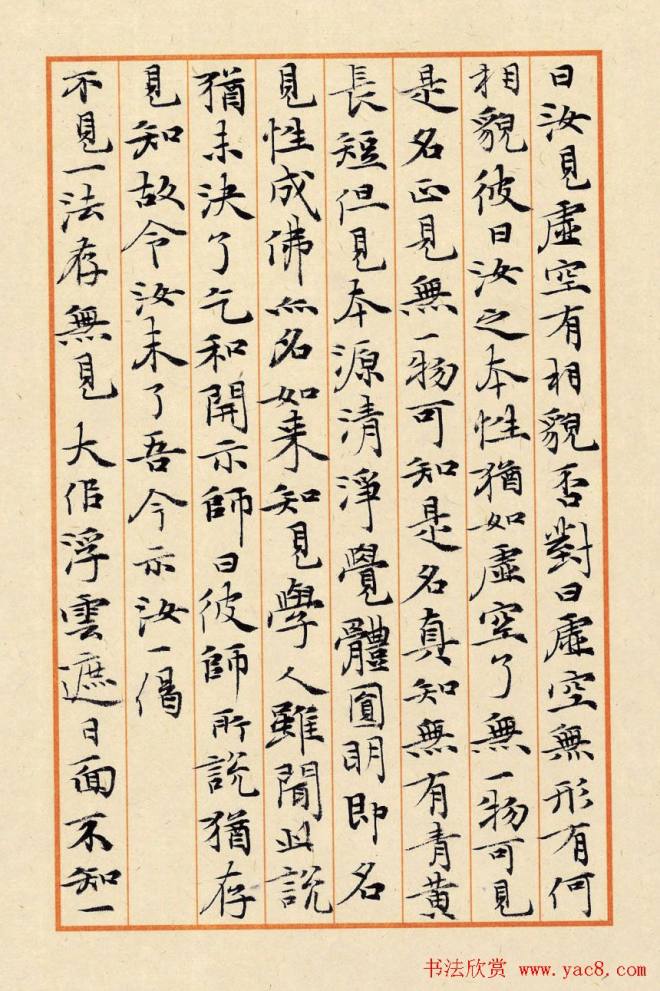 曰汝見虛空有相貌否對曰虛空無形有何
相貌彼曰汝之本性猶如虛空了無一物可見
是名正見無一物可知是名真知無有青黃
長短但見本源清淨覺體圓明即名
見性成佛亦名如來知見學人雖聞此說
猶未決了乞和開示師曰彼師所說猶存
見知故令汝未了吾今示汝一偈
不見一法存無見大似浮雲遮日面不知一
书法欣赏 www.yac8.com